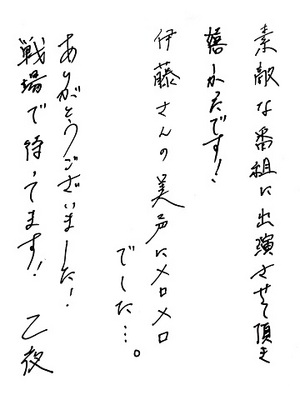 素敵な番組に出演させて頂き
嬉しかったです!
伊藤さんの美声にメロメロ
でした…。
ありがとうございました!
戦場で待ってます!
乙夜